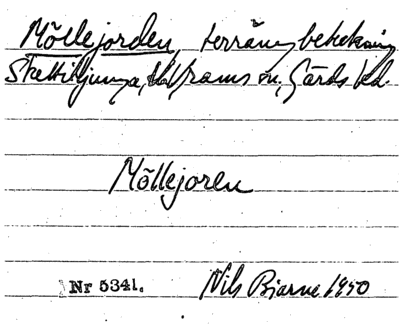 Möllejorden, terrängbeteckning
Skättiljunga, Träne sn, Gärds hd.
Möllejoren
Nr 5341. Nils Bjarne 1950